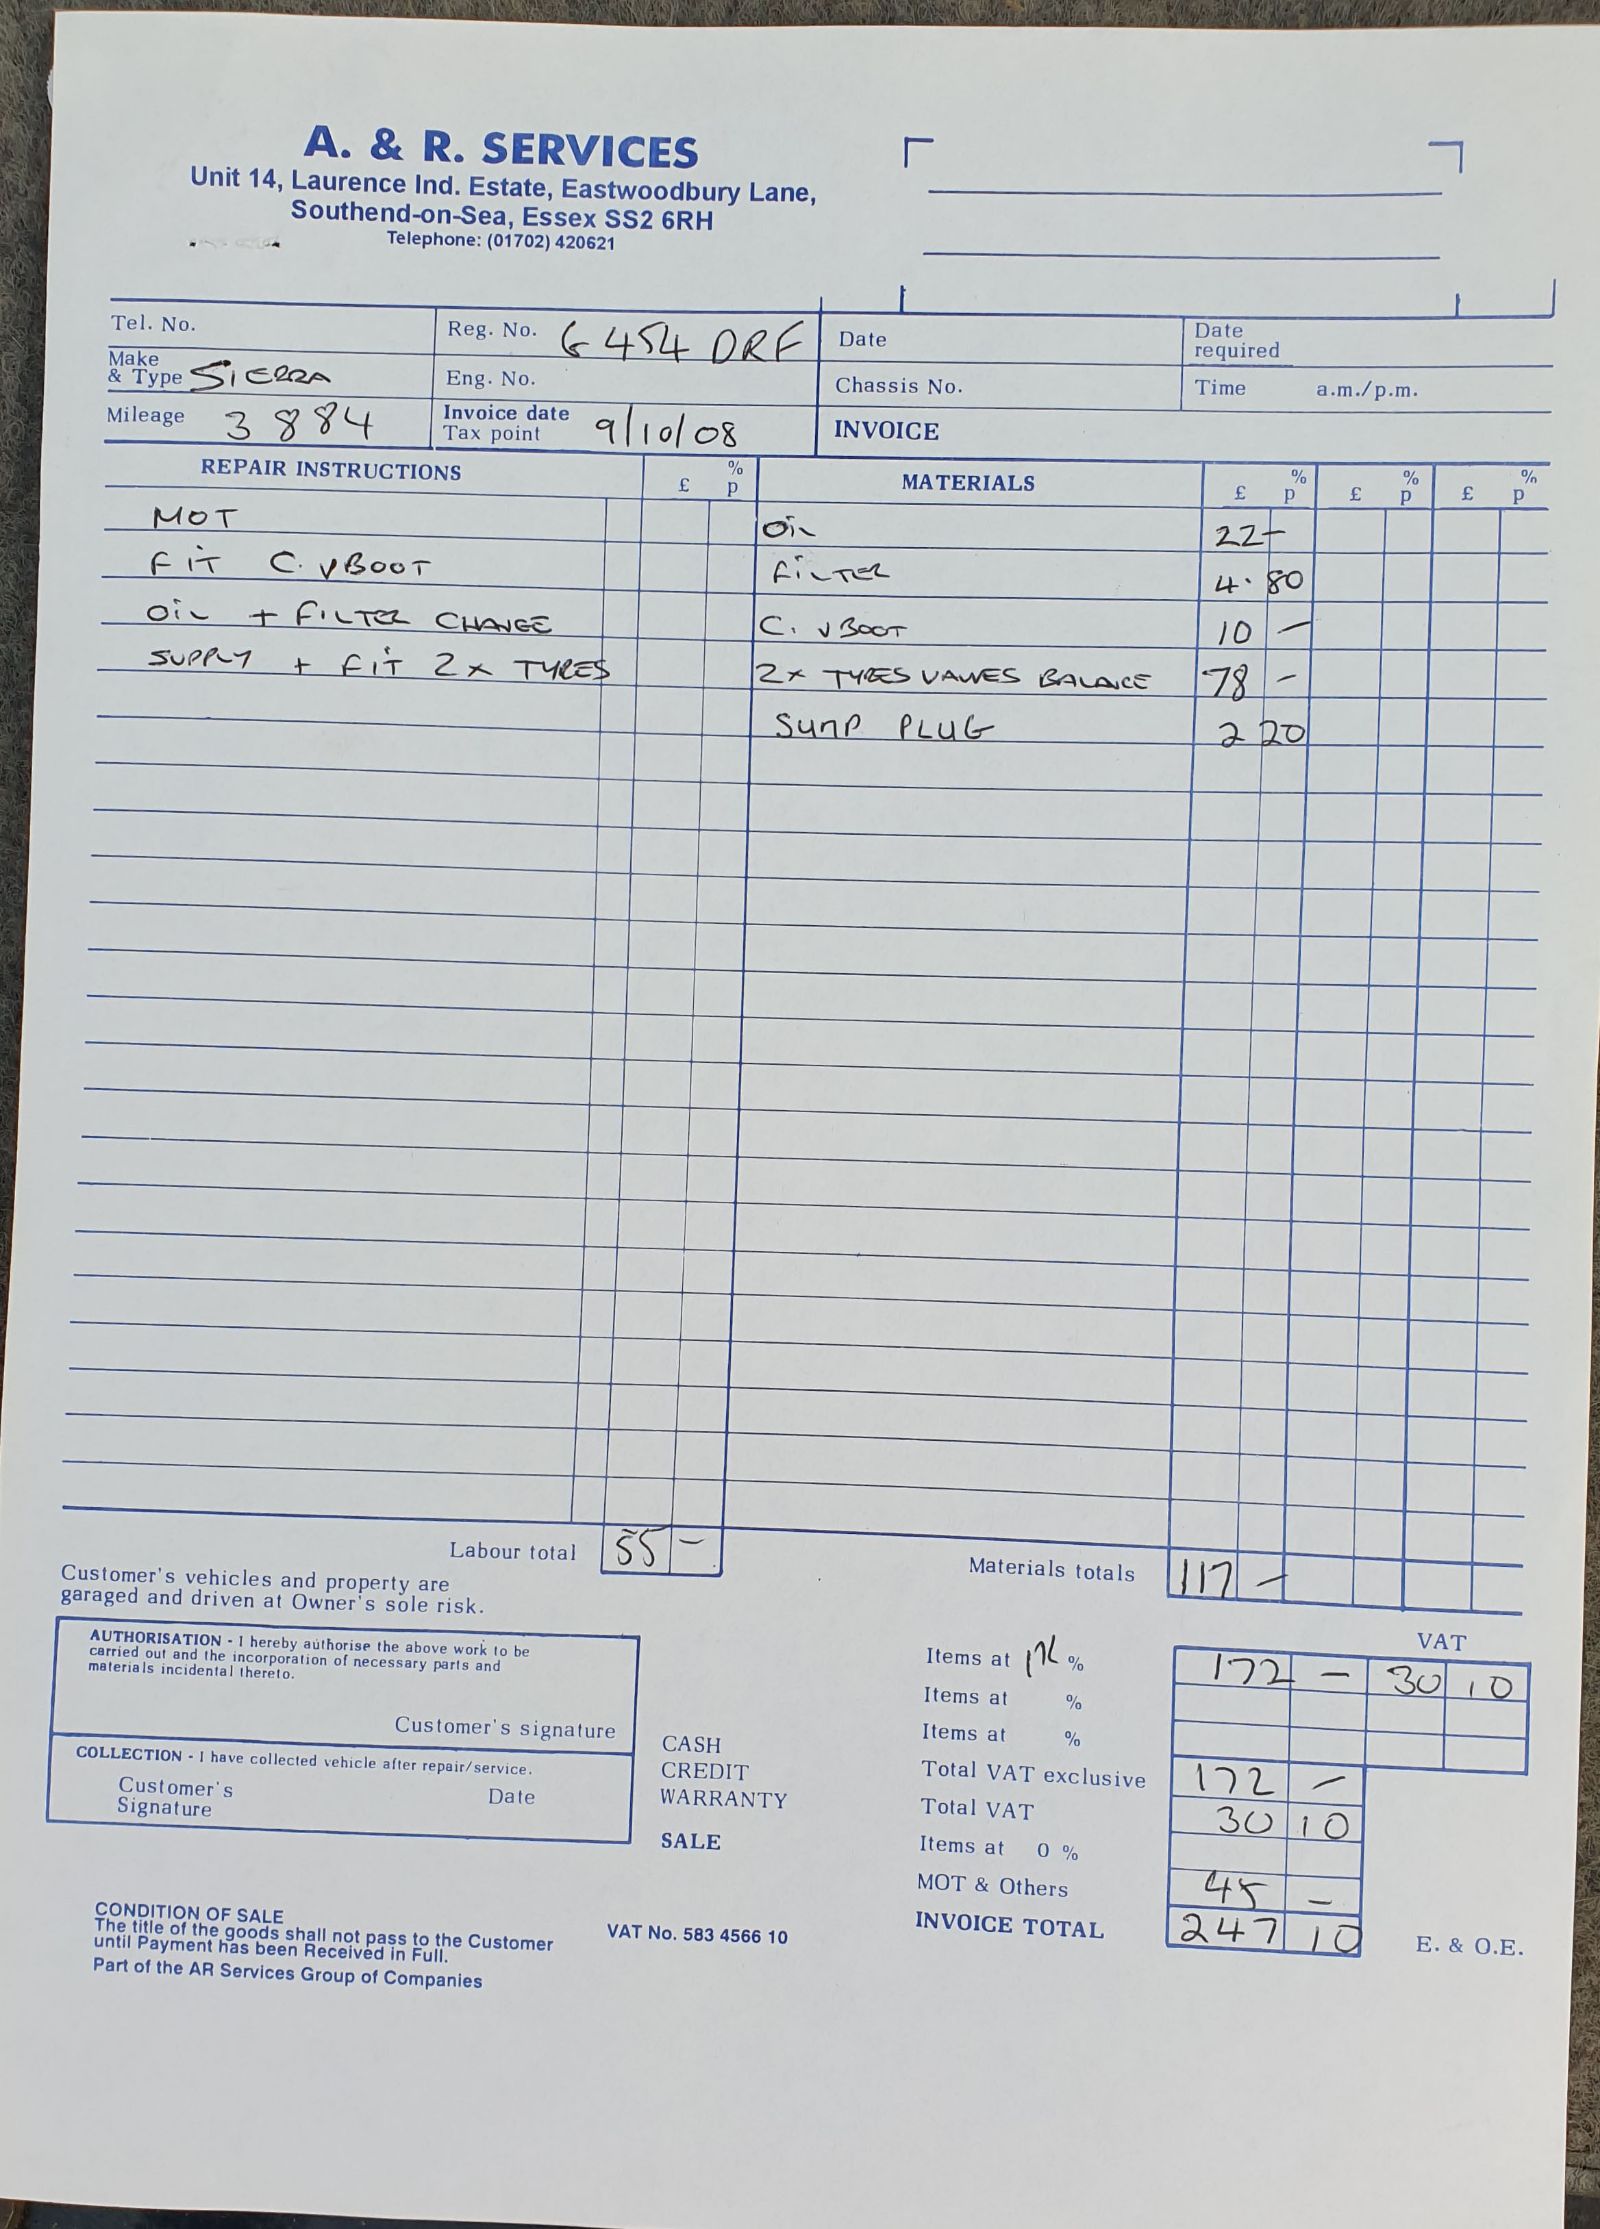 A. & R. SERVICES
Unit 14, Laurence Ind. Estate, Eastwoodbury Lane,
Southend-on-Sea, Essex SS2 6RH
Telephone: (01702) 420621
Tel. No. Reg. No. G 454 DRF Date Date required
Make & Type SIERRA Eng. No. Chassis No. Time a.m./p.m.
Mileage 3884 Invoice date Tax point 9/10/08 INVOICE
REPAIR INSTRUCTIONS £ % p MATERIALS £ % p £ % p £ % p
MOT OIL 22 -
FIT C.V BOOT FILTER 4.80
OIL + FILTER CHANGE C.V BOOT 10 -
SUPPLY + FIT 2x TYRES 2x TYRES VALVES BALANCE 78 -
SUMP PLUG 2 20
Labour total 55 - Materials totals 117 -
Customer's vehicles and property are
garaged and driven at Owner's sole risk.
AUTHORISATION - I hereby authorise the above work to be
carried out and the incorporation of necessary parts and
materials incidental thereto.
Customer's signature
COLLECTION - I have collected vehicle after repair/service.
Customer's Signature Date
CASH
CREDIT
WARRANTY
SALE
VAT
Items at % 172 - 30 10
Items at %
Items at %
Total VAT exclusive 172 -
Total VAT 30 10
Items at 0 %
MOT & Others 45 -
INVOICE TOTAL 247 10 E. & O.E.
CONDITION OF SALE
The title of the goods shall not pass to the Customer
until Payment has been Received in Full.
Part of the AR Services Group of Companies
VAT No. 583 4566 10